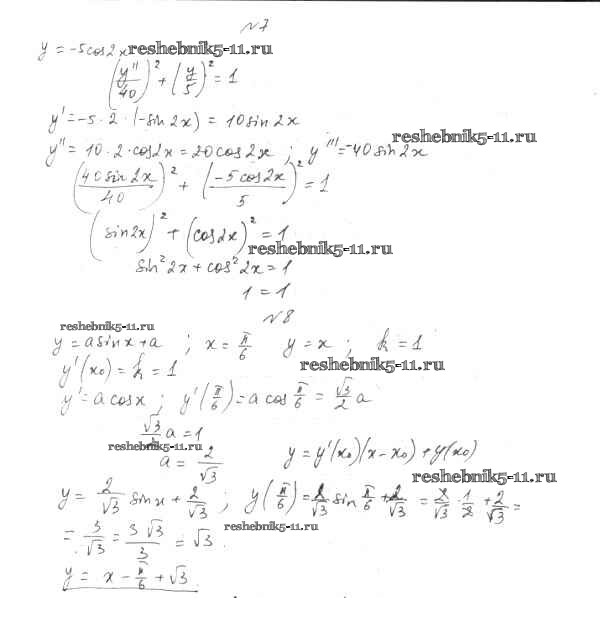 №7
y = -5cos2x reshebnik5-11.ru
(y''/40)² + (y/5)² = 1
y' = -5·2·(-sin2x) = 10sin2x
reshebnik5-11.ru
y'' = 10·2·cos2x = 20cos2x ; y''' = -40sin2x
(40sin2x/40)² + (-5cos2x/5)² = 1
(sin2x)² + (cos2x)² = 1
reshebnik5-11.ru
sin²2x + cos²2x = 1
1 = 1
№8
reshebnik5-11.ru
y = asinx + a ; x = π/6 y = x ; k = 1
y'(x₀) = k = 1 reshebnik5-11.ru
y' = a cosx ; y'(π/6) = a cos π/6 = √3/2 a
√3/2 a = 1
reshebnik5-11.ru
a = 2/√3 y = y'(x₀)(x - x₀) + y(x₀)
reshebnik5-11.ru
y = 2/√3 sinx + 2/√3 ; y(π/6) = 2/√3 sin π/6 + 2/√3 = 2/√3 · 1/2 + 2/√3 =
= 3/√3 = 3√3/3 = √3 reshebnik5-11.ru
y = x - π/6 + √3